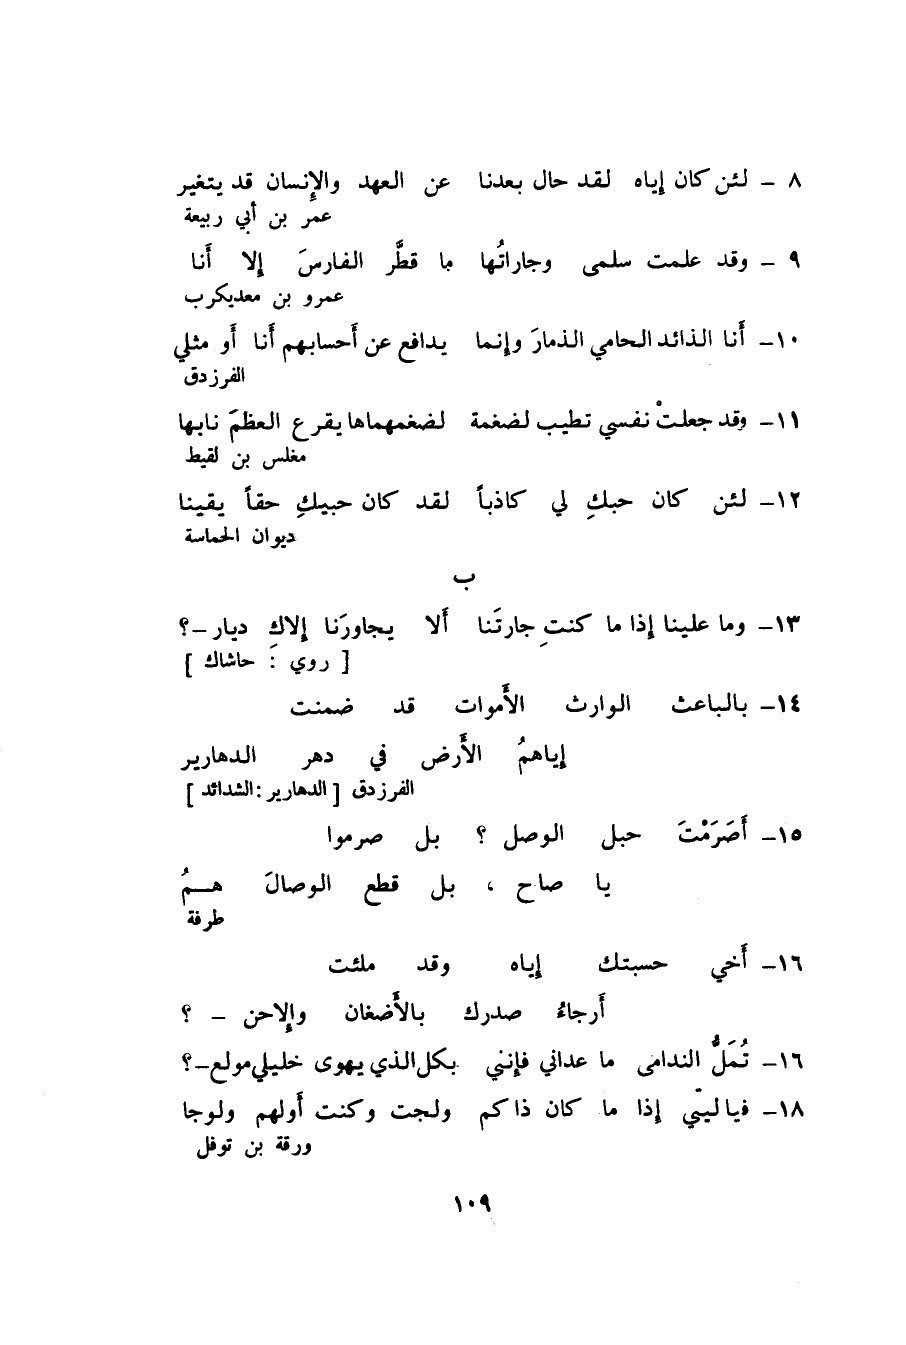 ٨ – لئن كان إياه لقد حال بعدنا عن العهد والإنسان قد يتغير
عمر بن أبي ربيعة
٩ – وقد علمت سلمى وجاراتُها ما قطَّر الفارسَ إلا أنا
عمرو بن معديكرب
١٠– أنا الذائد الحامي الذمارَ وإنما يدافع عن أحسابهم أنا أو مثلي
الفرزدق
١١– وقد جعلتْ نفسي تطيب لضغمة لضغمهماها يقرع العظمَ نابها
مغلس بن لقيط
١٢– لئن كان حبكِ لي كاذباً لقد كان حبيكِ حقاً يقينا
ديوان الحماسة
ب
١٣– وما علينا إذا ما كنتِ جارتَنا ألا يجاورَنا إلاكِ ديار –؟
[ روي : حاشاكِ ]
١٤– بالباعث الوارث الأموات قد ضمنت
إياهمُ الأرض في دهر الدهارير
الفرزدق [ الدهارير : الشدائد ]
١٥– أصَرَمْتَ حبل الوصل ؟ بل صرموا
يا صاح ، بل قطع الوصالَ هــمُ
طرفة
١٦– أخي حسبتك إياه وقد ملئت
أرجاءُ صدرك بالأضغان والإحن – ؟
١٦– تُمَلُّ الندامى ما عداني فإنني بكل الذي يهوى خليلي مولع–؟
١٨– فياليتي إذا ما كان ذاكم ولجت وكنت أولهم ولوجا
ورقة بن توفل
١٠٩